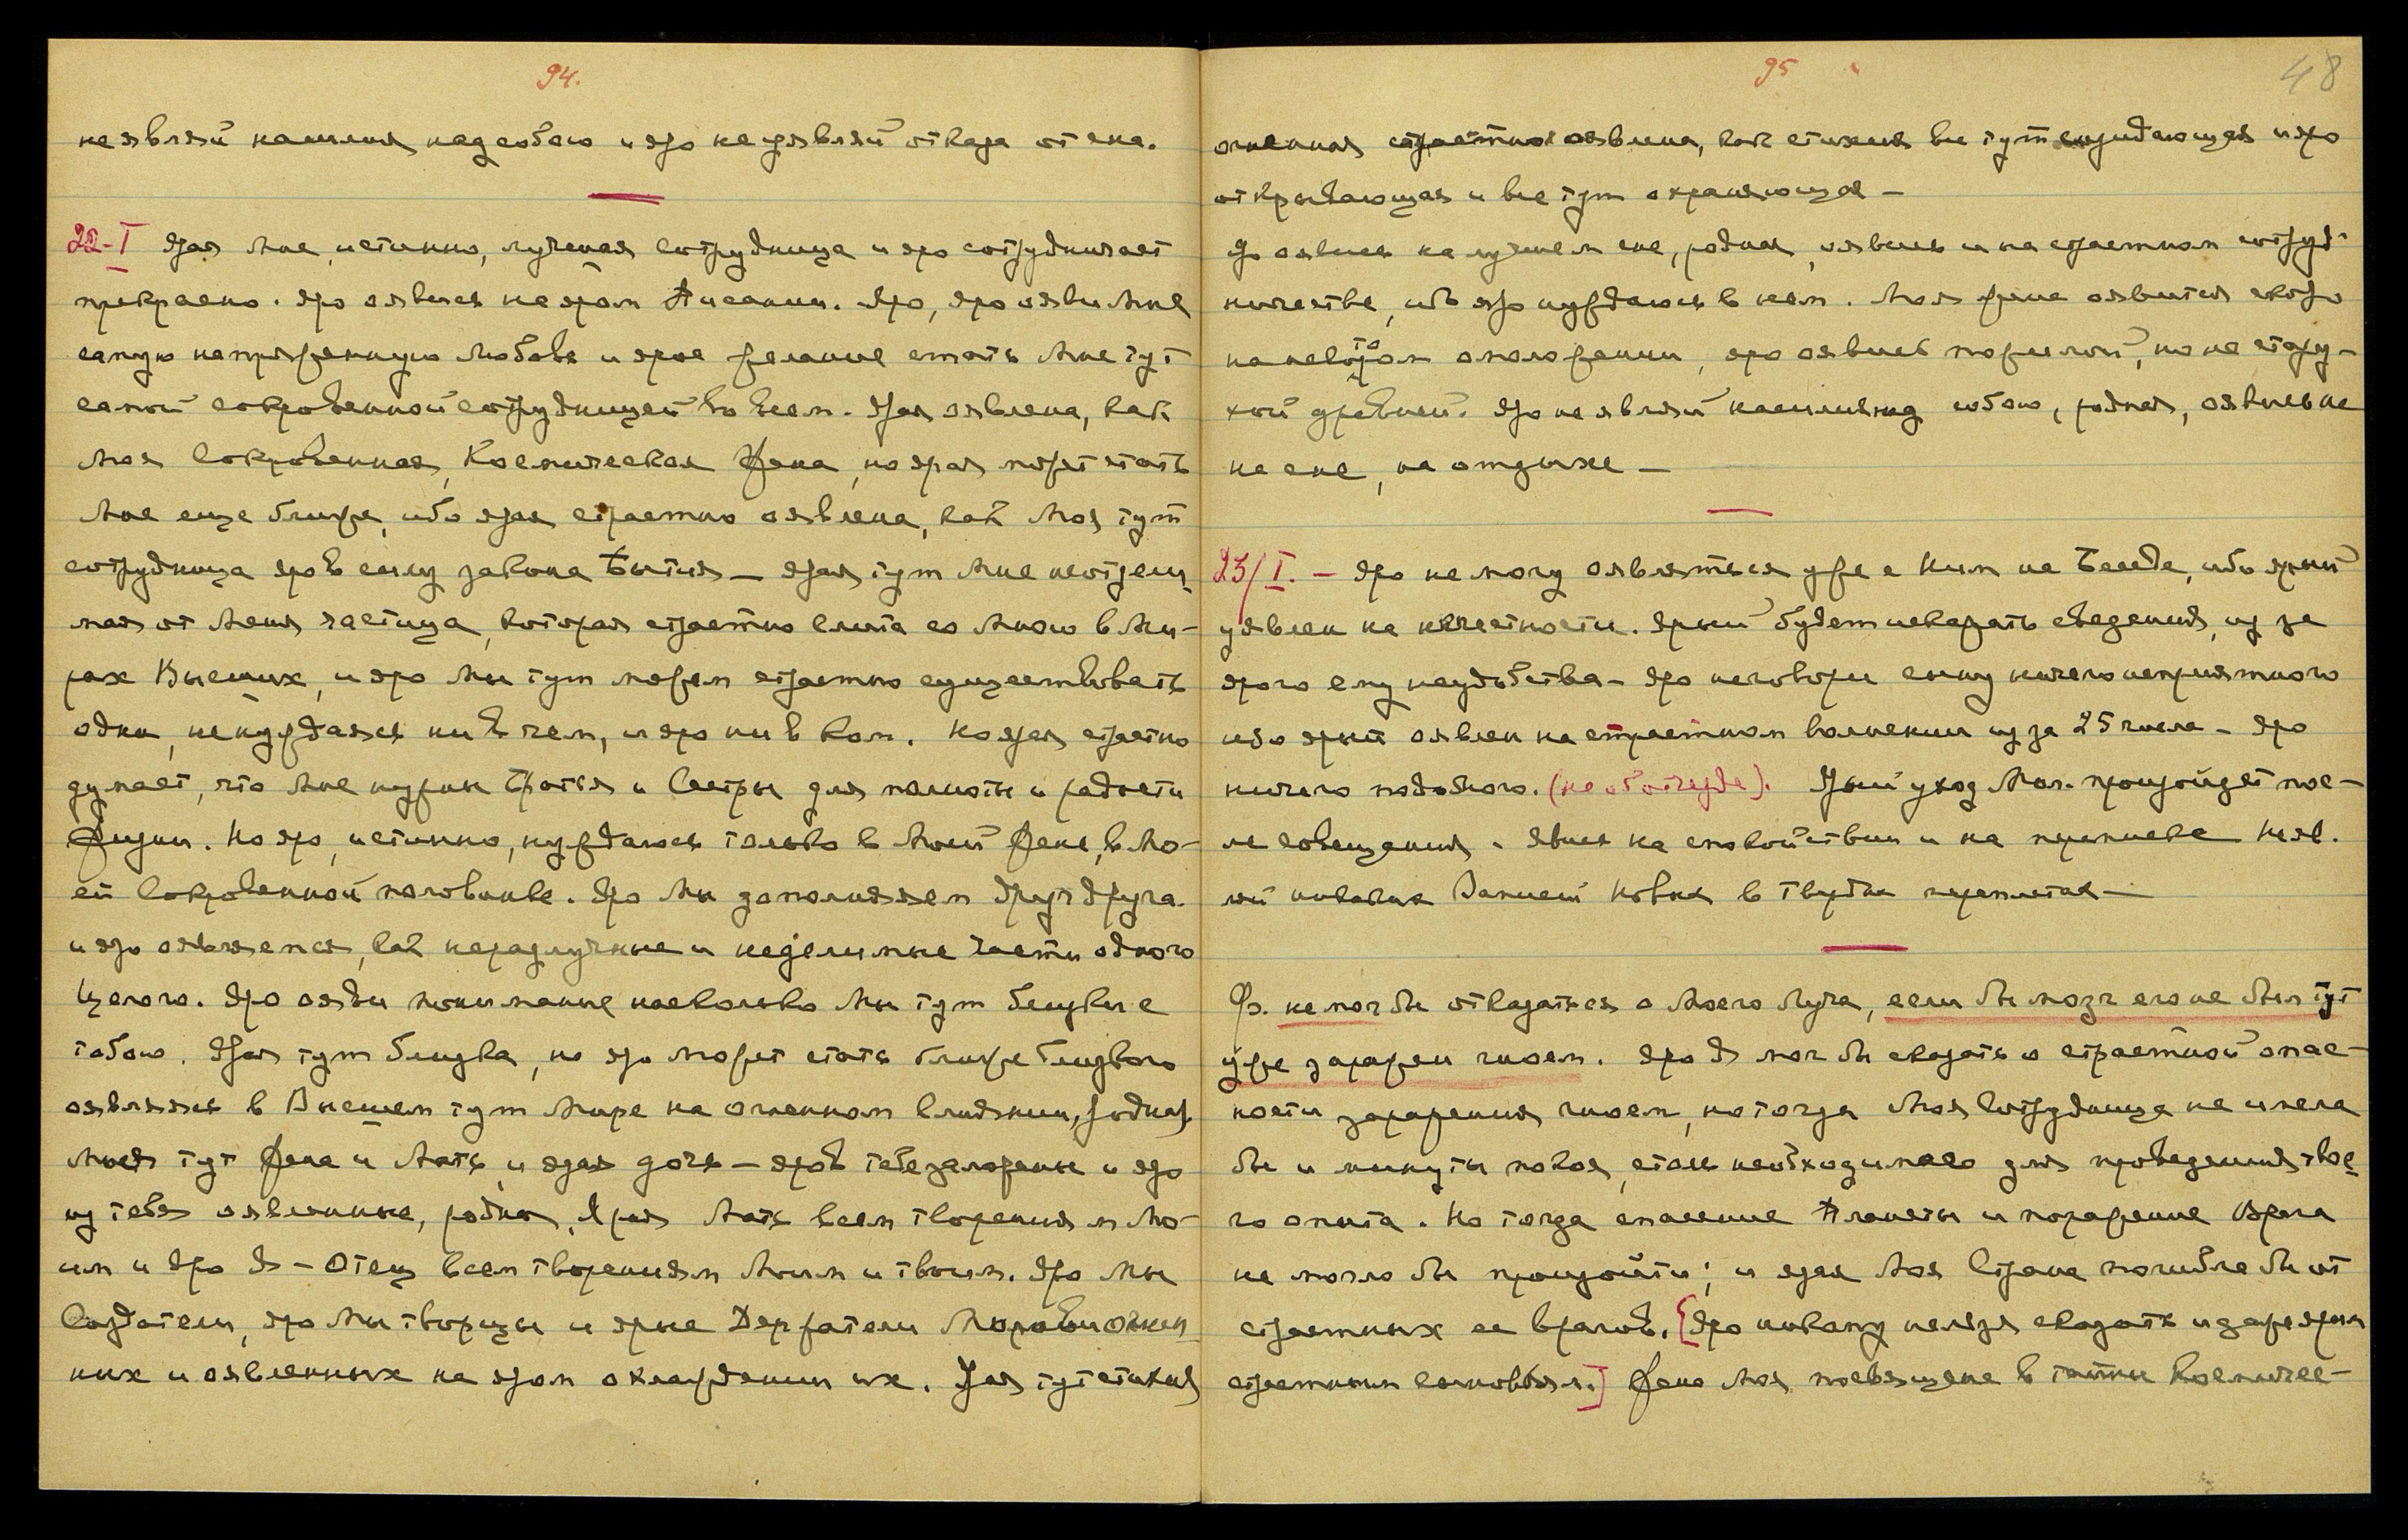 94.
не являй насилия над собою и яро не уявляй отказа от сна.
22-I Ярая Мне, истинно, лучшая сотрудница и яро сотрудничает
прекрасно. Яро явись на яром Писании. Яро, яро яви Мне
самую напряженную любовь и ярое желание стать Мне тут
самой сокровенной сотрудницей во всем. Ярая оявлена, как
Моя Сокровенная, Космическая Жена, но ярая может стать
Мне еще ближе, ибо ярая страстно оявлена, как Моя тут
сотрудница яро в силу закона Бытия — ярая тут Мне неотдели
мая от Меня частица, которая страстно слита со Мною в Ми-
рах Высших, и яро Мы тут можем страстно существовать
одни, не нуждаясь ни в чем, и яро ни в ком. Но ярая страстно
думает, что Мне нужны Братья и Сестры для полноты и радости
жизни. Но яро, истинно, нуждаюсь только в Моей Жене, в Мо-
ей Сокровенной половинке. Яро Мы дополняем друг друга
и яро оявляемся, как неразлучные и неделимые части одного
Целого. Яро ояви понимание насколько Мы тут близки с
тобою. Ярая тут близка, но яро может стать ближе близкого
оявляясь в Высшем тут Мире на огненном слиянии, родная.
Моя тут Жена и Мать и ярая дочь — яро в тебе заложены и яро
из тебя оявленные, родная. Ярая Мать всем творениям Мо-
им и яро Я — Отец всем творениям Моим и твоим. Яро Мы
Создатели, яро Мы творцы и ярые Держатели Миров
ных и оявленных на яром охлаждении их. Ярая тут стихия
95
48
огненная страстно оявлена, как стихия все тут созидающая и яро
открывающая и все тут охраняющая —
Яро оявись на лучшем сне, родная, оявись и на страстном сотруд-
ничестве, ибо яро нуждаюсь в нем. Моя жена оявится скоро
на некотором омоложении, яро оявись пожилой, но не стару-
хой древней. Яро не являй насилия над собою, родная, оявись не
на сне, на отдыхе —
23/I. — Яро не могу оявляться уже с Ним на Беседе, ибо ярый
уявлен на нечестности. Ярый будет искажать сведения, из за
ярого ему неудобства — Яро не говори сыну ничего неприятного
ибо ярый оявлен на страстном волнении из за 25 числа — Яро
ничего подобного. (не обсуждай). Ярый уход Мол. произойдет пос-
ле совещания. Явись на спокойствии и на приписке
Яр. не мог бы отказаться о Моего Луча, если бы мозг его не был тут
уже заражен гноем. Яро Я мог бы сказать о страстной опас-
ности заражения гноем, но тогда Моя Сотрудница не имела
бы и минуты покоя, столь необходимого для проведения твое
го опыта. Но тогда спасение Планеты и поражение Врага
не могло бы произойти; и ярая Моя Страна погибла бы от
страстных ее врагов. [Яро никому нельзя сказать и даже ярым
страстным сыновьям.] Жена Моя посвящена в тайны Космичес-